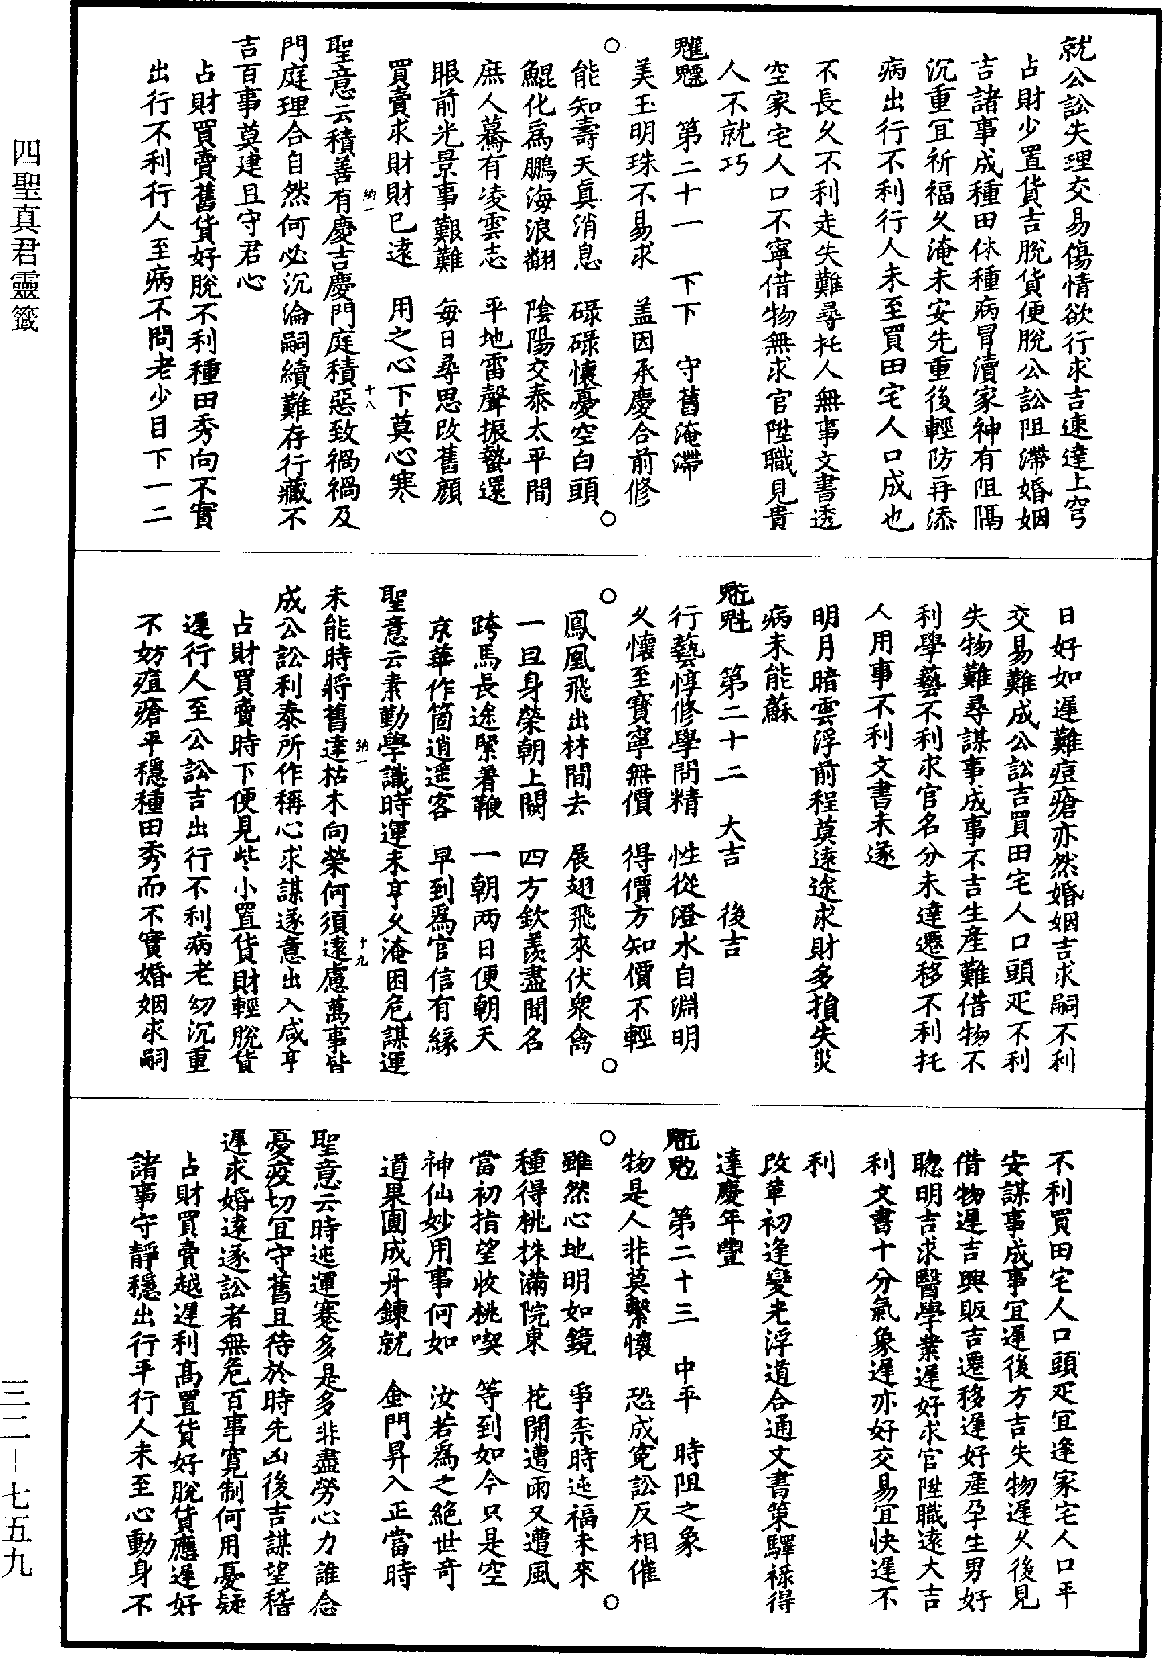 就公訟失理交易傷情欲行求吉速達上穹
占財少置貨吉脫貨便脫公訟阻滯婚姻
吉諸事成種田休種病冒瀆家神有阻隔
沉重宜祈福久淹未安先重後輕防再添
病出行不利行人未至買田宅人口成也
不長久不利走失難尋托人無事文書透
空家宅人口不寧借物無求官陞職見貴
人不就巧
第二十一　下下　守舊淹滯
美玉明珠不易求　蓋因承慶合前修
能知壽夭真消息　碌碌懷憂空白頭
鯤化為鵬海浪翻　陰陽交泰太平間
庶人驀有凌雲志　平地雷聲振蟄還
眼前光景事艱難　每日尋思改舊顏
買賣求財財已遠　用之心下莫心寒
聖意云積善有慶吉慶門庭積惡致禍禍及
納一　十八
門庭理合自然何必沉淪嗣續難存行藏不
吉百事莫建且守君心
占財買賣舊貨好脫不利種田秀向不實
出行不利行人至病不問老少目下一二
日好如遲難痘瘡亦然婚姻吉求嗣不利
交易難成公訟吉買田宅人口頭疋不利
失物難尋謀事成事不吉生產難借物不
利學藝不利求官名分未達遷移不利托
人用事不利文書未遂
明月暗雲浮前程莫遠途求財多損失災
病未能蘇
第二十二　大吉　後吉
行藝惇修學問精　性從澄水自淵明
久懷至寶寧無價　得價方知價不輕
鳳凰飛出林間去　展翅飛來伏眾禽
一旦身榮朝上闕　四方欽羨盡聞名
跨馬長途緊著鞭　一朝兩日便朝天
京華作箇逍遙客　早到為官信有緣
聖意云素勤學識時運未亨久淹困危謀運
未能時將舊達枯木向榮何須遠慮萬事皆
納一　十九
成公訟利泰所作稱心求謀遂意出入咸亨
占財買賣時下便見些小置貨財輕脫貨
遲行人至公訟吉出行不利病老幼沉重
不妨疽瘡平穩種田秀而不實婚姻求嗣
不利買田宅人口頭疋宜逢家宅人口平
安謀事成事宜遲後方吉失物遲久後見
借物遲吉興販吉遷移遲好產孕生男好
聰明吉求醫學業遲好求官陞職遠大吉
利文書十分氣象遲亦好交易宜快遲不
利
改革初逢變光浮道合通文書策驛祿得
達慶年豐
第二十三　中平　時阻之象
物是人非莫繫懷　恐成冤訟反相催
雖然心地明如鏡　爭柰時迍福未來
種得桃株滿院東　花開遭雨又遭風
當初指望收桃喫　等到如今只是空
神仙妙用事何如　汝若為之絕世奇
道果圓成丹鍊就　金門昇入正當時
聖意云時迍運蹇多是多非盡勞心力誰念
憂疫切宜守舊且待於時先凶後吉謀望稽
遲求婚遠遂訟者無危百事寬制何用憂疑
占財買賣越遲利高置貨好脫貨應遲好
諸事守靜穩出行平行人未至心動身不
四聖真君靈籤
三二－七五九